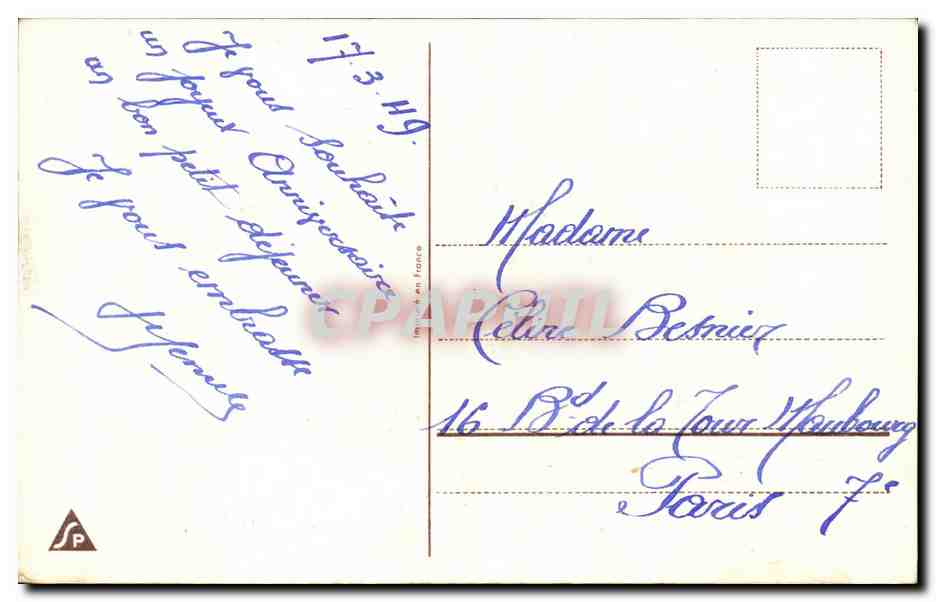 17.3.49.
Je vous souhaite
un joyeux Anniversaire
un bon petit déjeuner
Je vous embrasse
Imprimé en France
CPAPHIL
Madame
Céline Besnier
16 Bd de la Tour Maubourg
Paris 7e
SP